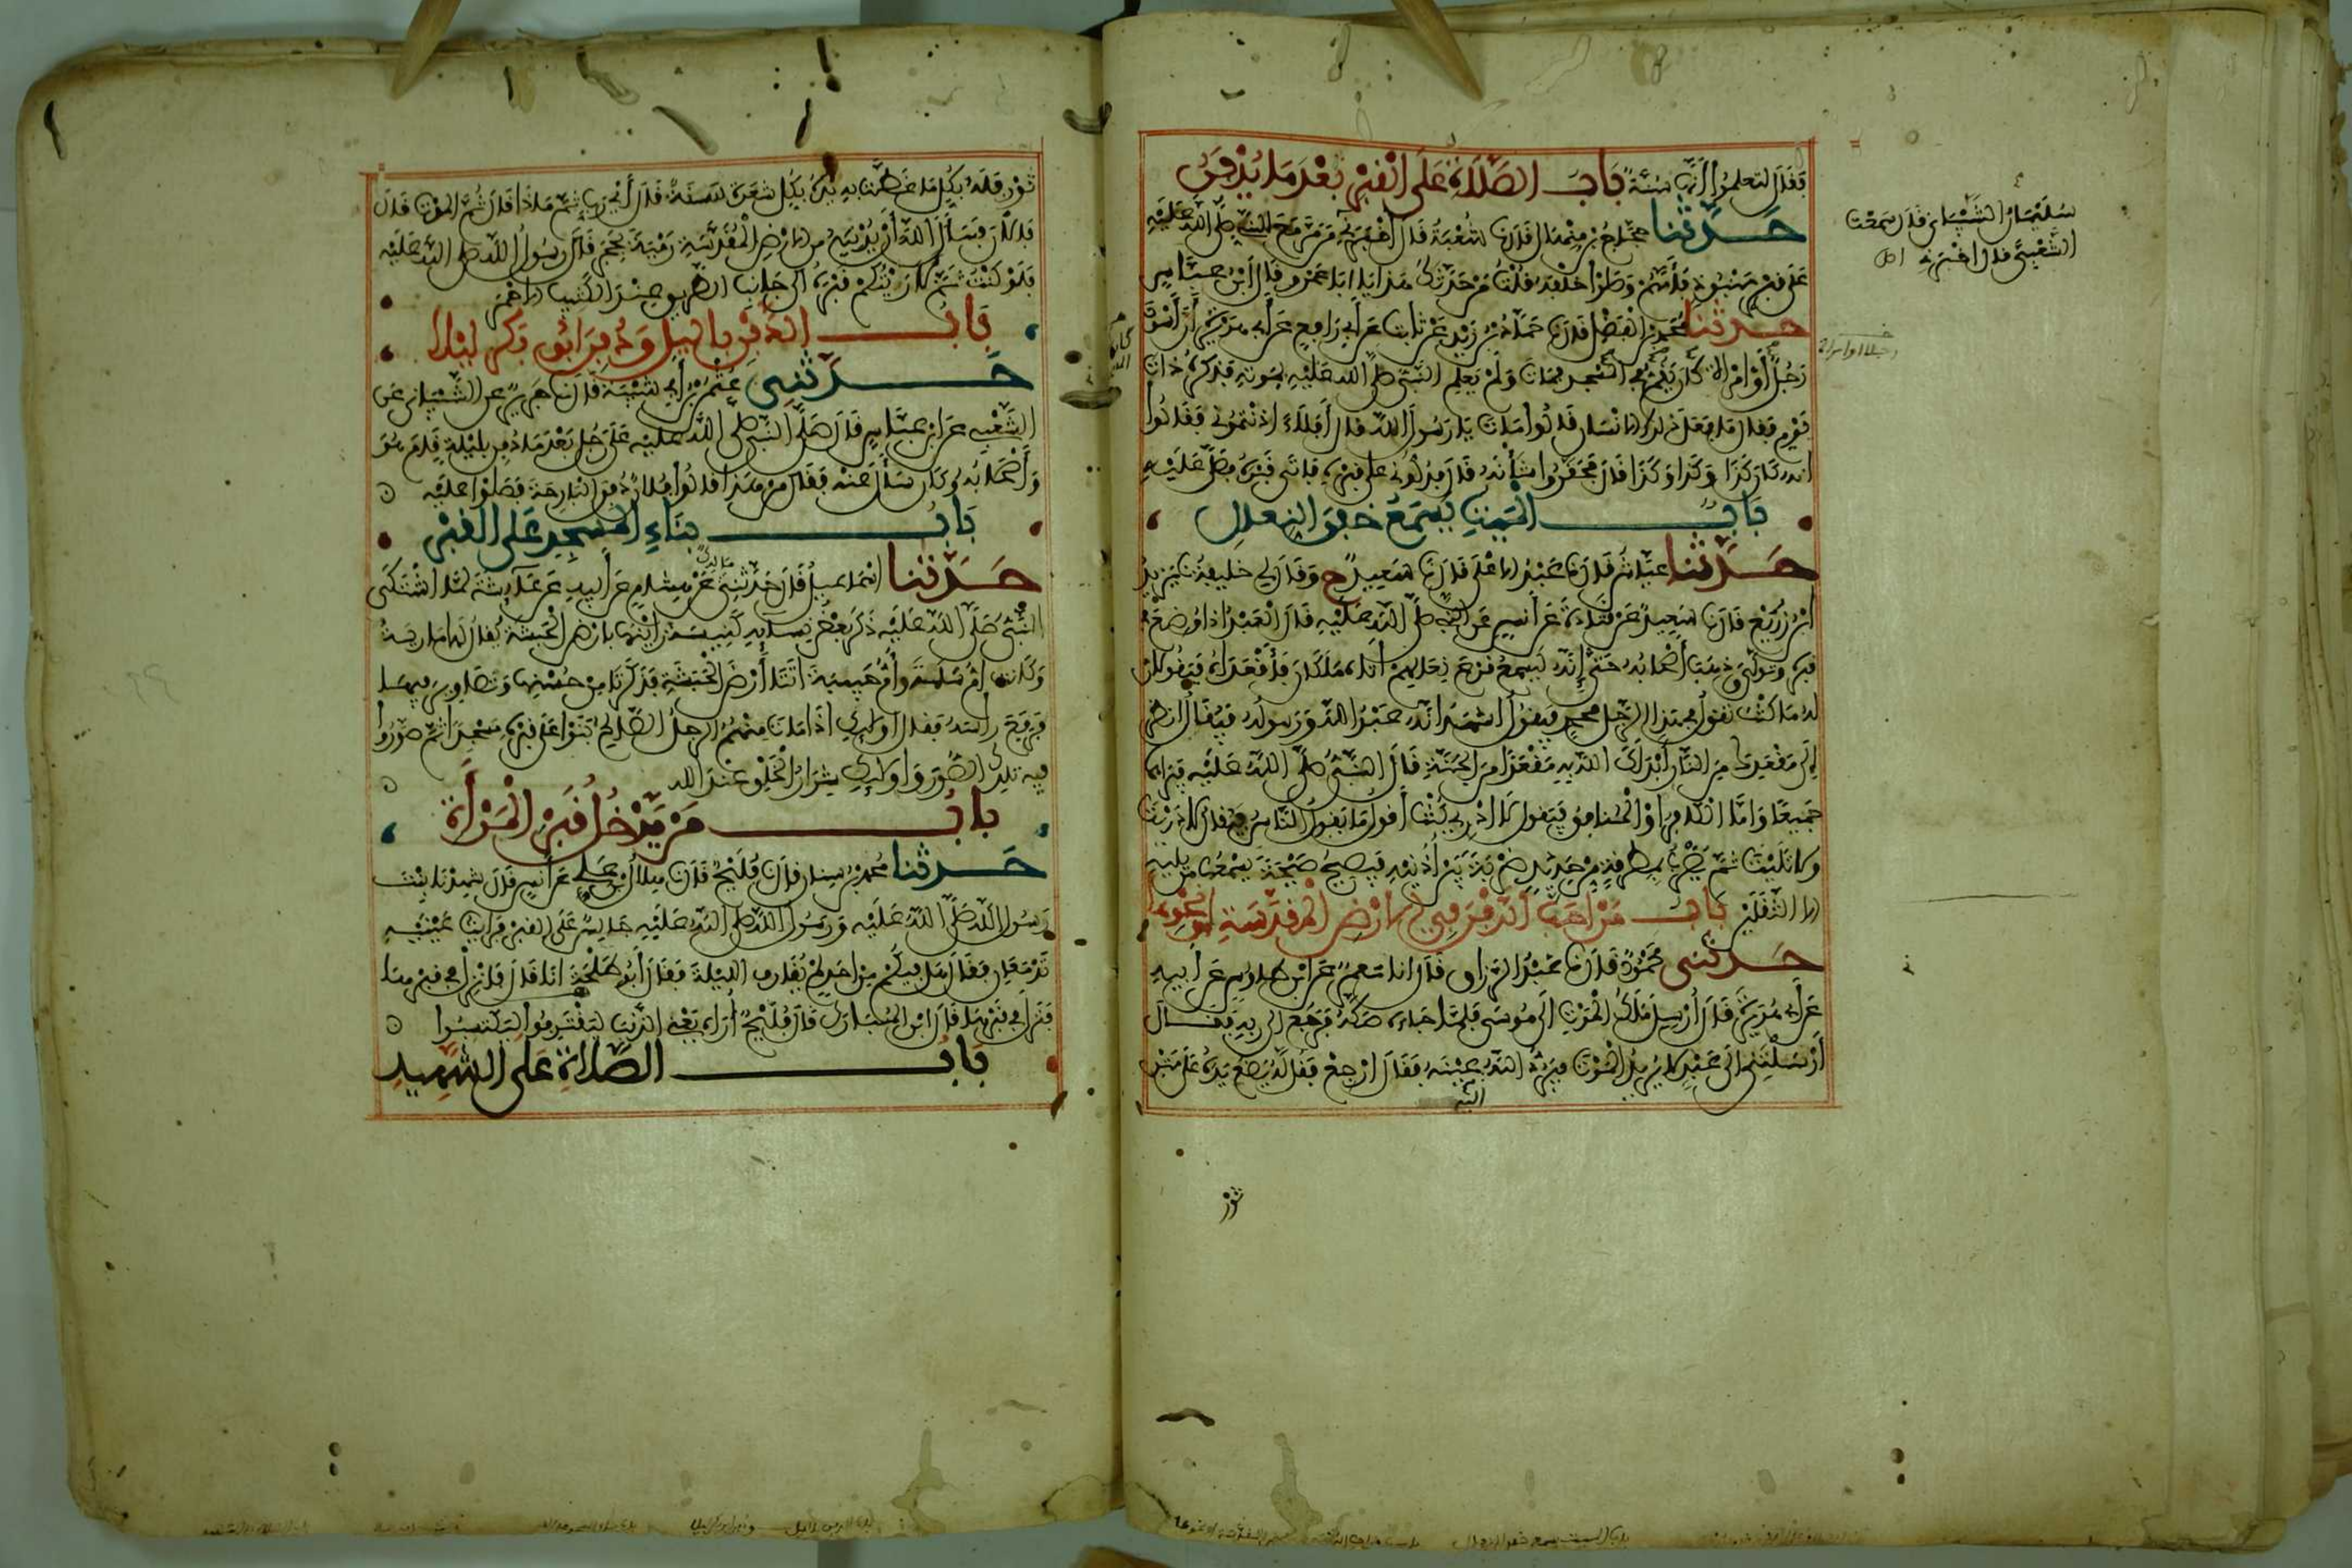 فقال لتعلموا أنها سنة باب الصلاة على القبر بعد ما يدفن
حدثنا حجاج بن منهال قال نا شعبة قال أخبرني من مر مع النبي صلى الله عليه
على قبر منبوذ فأمهم وصلوا خلفه قلت من حدثك هذا يا ابا عمرو قال ابن عباس
حدثنا محمد بن الفضل قال نا حماد بن زيد عن ثابت عن أبي رافع عن أبي هريرة أن أسود
رجلا أو امرأة كان يقم المسجد فمات ولم يعلم النبي صلى الله عليه بموته فذكره ذات
يوم فقال ما فعل ذلك الانسان قالوا مات يا رسول الله قال أفلا اذنتموني فقالوا
انه كان كذا وكذا وكذا قال فحقروا شأنه قال فدلوني على قبره فاتى قبره فصلى عليه
باب الميت يسمع خفق النعال
حدثنا عياش قال نا عبد الاعلى قال نا سعيد ح وقال لي خليفة نا يزيد
ابن زريع قال نا سعيد عن قتادة عن أنس عن النبي صلى الله عليه قال العبد اذا وضع في
قبره وتولى وذهب أصحابه حتى إنه ليسمع قرع نعالهم أتاه ملكان فأقعداه فيقولان
له ما كنت تقول في هذا الرجل محمد فيقول اشهد انه عبد الله ورسوله فيقال انظر
إلى مقعدك من النار أبدلك الله به مقعدا من الجنة قال النبي صلى الله عليه فيراهما
جميعا وأما الكافر او المنافق فيقول لا ادري كنت أقول ما يقول الناس فيقال لا دريت
ولا تليت ثم يضرب بمطرقة من حديد ضربة بين أذنيه فيصيح صيحة يسمعها من يليه
الا الثقلين باب من أحب الدفن في الارض المقدسة او نحوها
حدثني محمود قال نا عبد الرزاق قال انا معمر عن ابن طاوس عن أبيه
عن أبي هريرة قال أرسل ملك الموت الى موسى فلما جاءه صكه فرجع الى ربه فقال
أرسلتني الى عبد لا يريد الموت فرد الله عينه فقال ارجع فقل له يضع يده على متن
الله
ثور
سليمان الشيباني قال سمعت
الشعبي قال اخبرني
رجلا او امراة
ثور فله بكل ما غطت به يده بكل شعرة سنة قال أي رب ثم ماذا قال ثم الموت قال
فالان فسأل الله أن يدنيه من الارض المقدسة رمية بحجر قال رسول الله صلى الله عليه
فلو كنت ثم لاريتكم قبره الى جانب الطريق عند الكثيب الاحمر
باب الدفن بالليل ودفن ابو بكر ليلا
حدثني عثمن بن أبي شيبة قال نا جرير عن الشيباني عن
الشعبي عن ابن عباس قال صلى النبي صلى الله عليه على رجل بعد ما دفن بليلة قام هو
وأصحابه وكان سأل عنه فقال من هذا قالوا فلان دفن البارحة فصلوا عليه
باب بناء المسجد على القبر
حدثنا اسماعيل قال حدثني مالك عن هشام عن أبيه عن عائشة لما اشتكى
النبي صلى الله عليه ذكر بعض نسائه كنيسة رأينها بارض الحبشة يقال لها مارية
وكانت أم سلمة وأم حبيبة اتتا أرض الحبشة فذكرتا من حسنها وتصاوير فيها
فرفع رأسه فقال اولئك اذا مات منهم الرجل الصالح بنوا على قبره مسجدا ثم صوروا
فيه تلك الصور وأولئك شرار الخلق عند الله
باب من يدخل قبر المرأة
حدثنا محمد بن سنان قال نا فليح قال نا هلال بن علي عن أنس قال شهدنا بنت
رسول الله صلى الله عليه ورسول الله صلى الله عليه جالس على القبر فرأيت عينيه
تدمعان فقال هل فيكم من احد لم يقارف الليلة فقال أبو طلحة انا قال فانزل في قبرها
فنزل في قبرها قال ابن المبارك قال فليح أراه يعني الذنب ليقترفوا ليكتسبوا
باب الصلاة على الشهيد